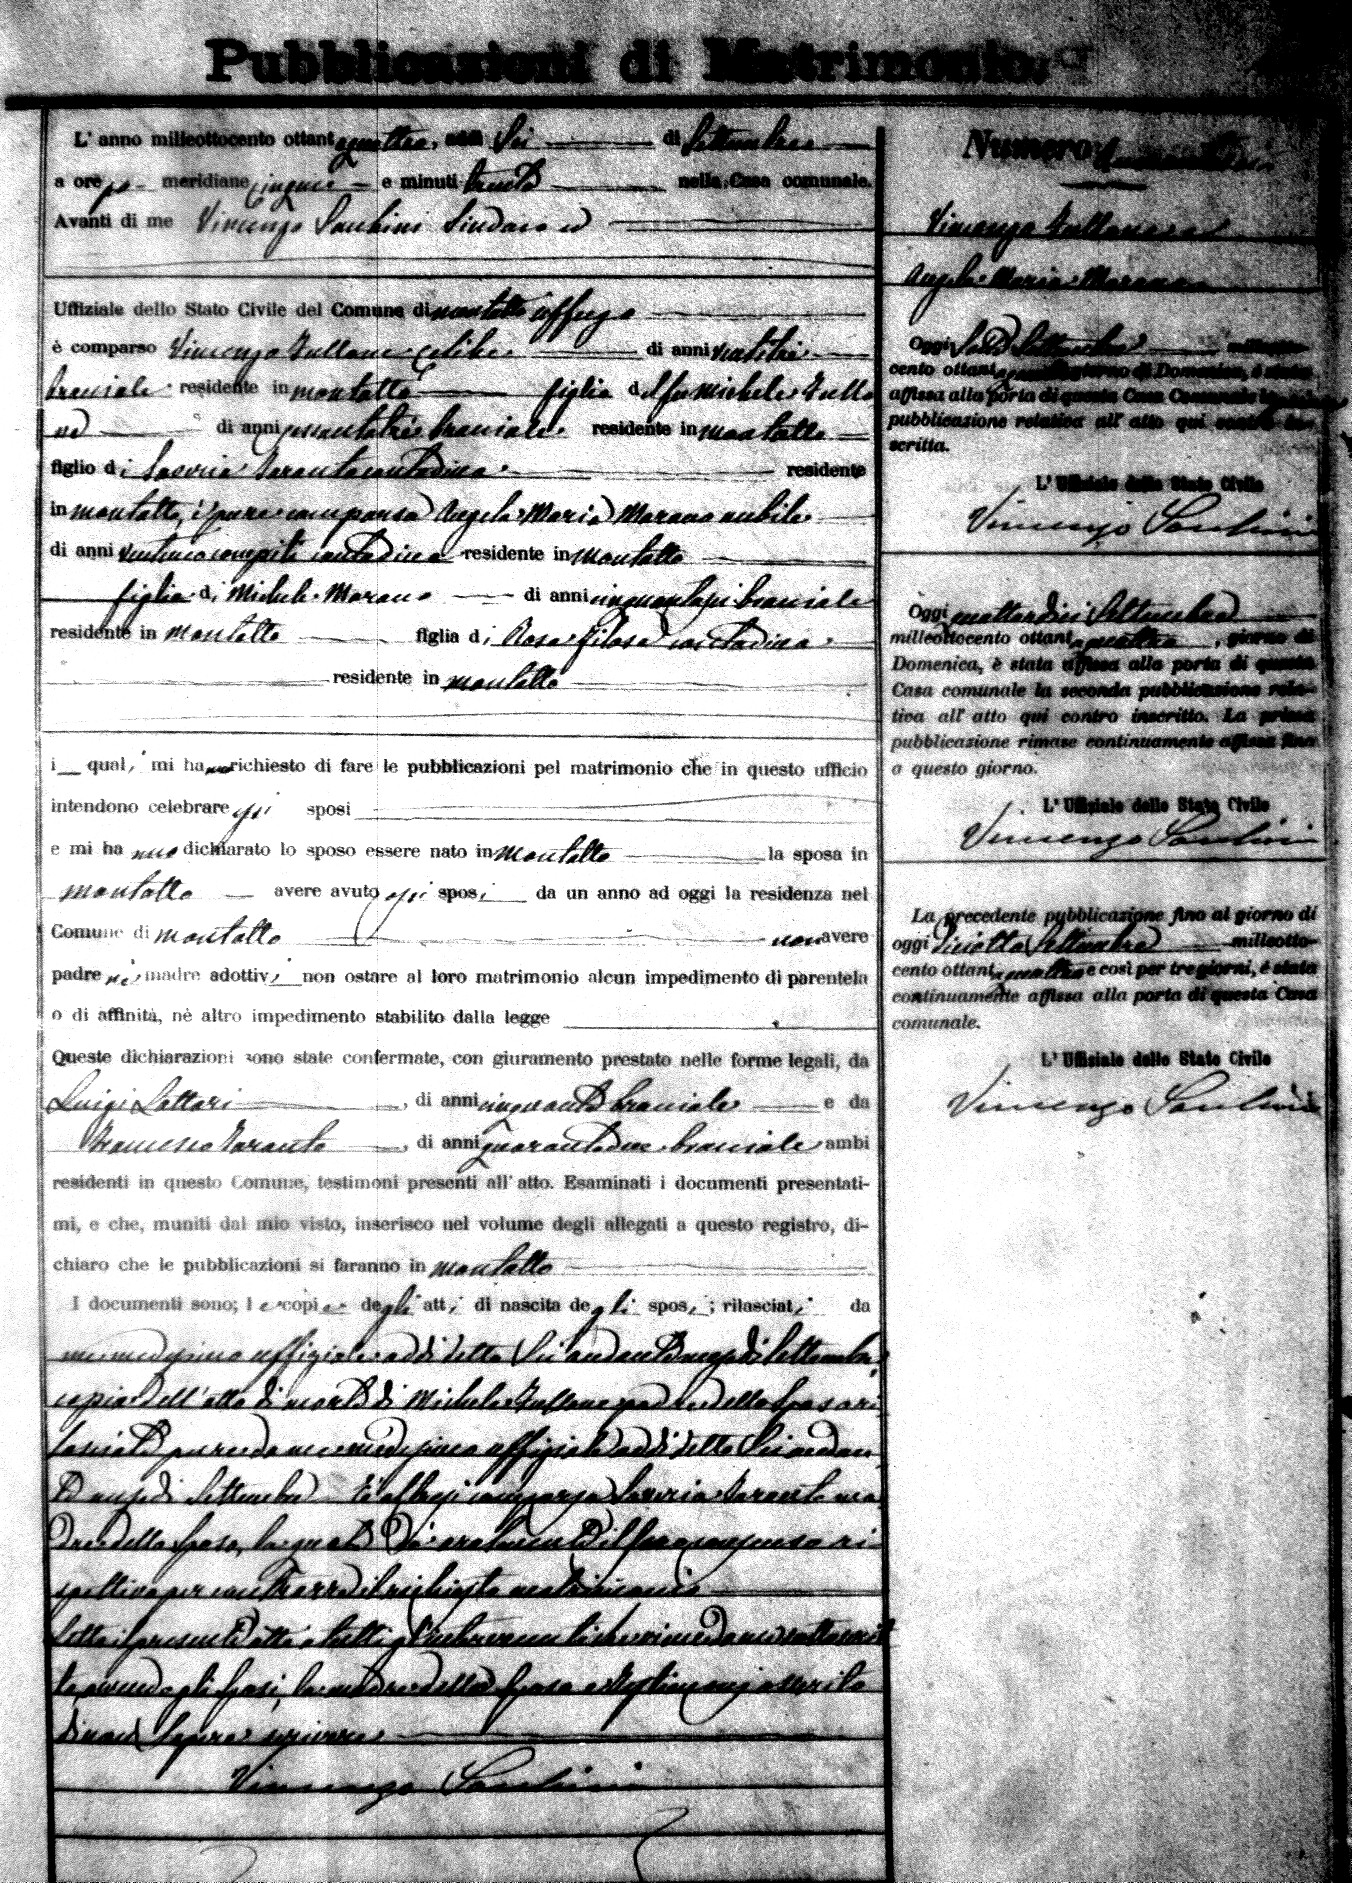 Pubblicazioni di Matrimonio.
L' anno milleottocento ottantaquattro, addì Sei di Settembre
a ore po meridiane cinque e minuti trenta nella Casa comunale.
Avanti di me Vincenzo Santini Sindaco ed
Uffiziale dello Stato Civile del Comune di montalto uffugo
è comparso Vincenzo Zullano celibe di anni ventitre
braciale residente in montalto figlio del fu Michele Zulla
no di anni braciale residente in montalto
figlio di Saveria Taranto contadina residente
in montalto, è pure comparsa Angela Maria Morano nubile
di anni ventuno compiti contadina residente in montalto
figlia di Michele Morano di anni cinquantasei braciale
residente in montalto figlia di Rosa Filosa contadina
residente in montalto
i quali mi hanno richiesto di fare le pubblicazioni pel matrimonio che in questo ufficio
intendono celebrare essi sposi
e mi hanno dichiarato lo sposo essere nato in montalto la sposa in
montalto avere avuto essi sposi da un anno ad oggi la residenza nel
Comune di montalto non avere
padre nè madre adottivi non ostare al loro matrimonio alcun impedimento di parentela
o di affinità, nè altro impedimento stabilito dalla legge
Queste dichiarazioni sono state confermate, con giuramento prestato nelle forme legali, da
Luigi Lattari, di anni cinquanta braciale e da
Francesco Taranto, di anni quarantadue braciale ambi
residenti in questo Comune, testimoni presenti all' atto. Esaminati i documenti presentati-
mi, e che, muniti dal mio visto, inserisco nel volume degli allegati a questo registro, di-
chiaro che le pubblicazioni si faranno in montalto
I documenti sono; le copie degli atti di nascita degli sposi; rilasciati da
me medesimo uffiziale addì detto Sei andante mese di Settembre
copia dell'atto di morte di Michele Zullano padre dello sposo ri
lasciata pure da me medesimo uffiziale addì detto Sei andan
te mese di Settembre È altresì comparsa Saveria Taranto ma
dre dello sposo, la quale dà oralmente il suo consenso ri
spettivo per contrarre il richiesto matrimonio
Letto il presente atto a tutti gl'intervenuti
avendo gli sposi, la madre dello sposo e testimoni asserito
di non sapere scrivere
Vincenzo Santini
Numero
Vincenzo Zullano
Angela Maria Morano
Oggi Sette Settembre milleotto-
cento ottantaquattro giorno di Domenica, è stata
affissa alla porta di questa Casa Comunale la
pubblicazione relativa all' atto qui contro in-
scritto.
L' Uffiziale dello Stato Civile
Vincenzo Santini
Oggi quattordici Settembre
milleottocento ottantaquattro, giorno di
Domenica, è stata affissa alla porta di questa
Casa comunale la seconda pubblicazione rela-
tiva all' atto qui contro inscritto. La prima
pubblicazione rimase continuamente affissa fino
a questo giorno.
L' Uffiziale dello Stato Civile
Vincenzo Santini
La precedente pubblicazione fino al giorno di
oggi diciotto Settembre milleotto-
cento ottantaquattro e così per tre giorni, è stata
continuamente affissa alla porta di questa Casa
comunale.
L' Uffiziale dello Stato Civile
Vincenzo Santini